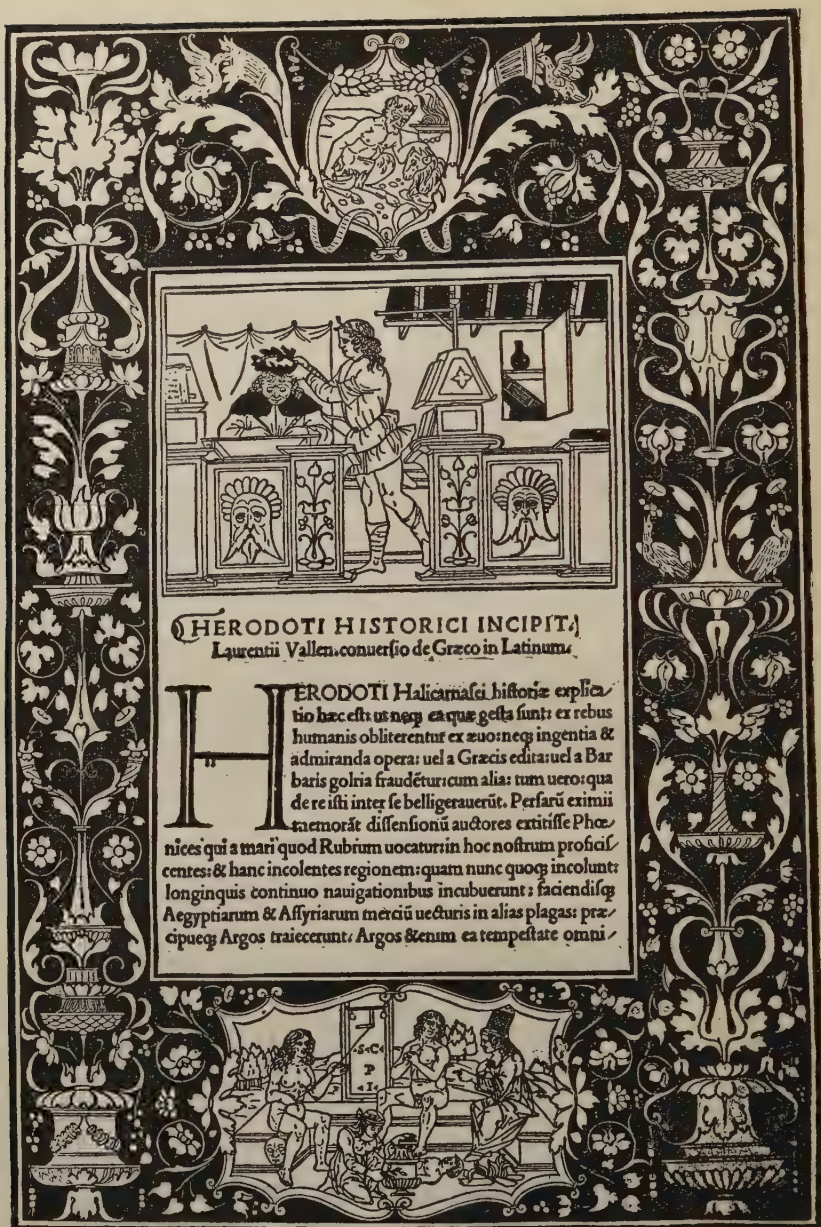 HERODOTI HISTORICI INCIPIT.
Laurentii Vallen.conuerſio de Græco in Latinum.
HERODOTI Halicarnaſei hiſtoriæ explica⸗
tio hæc eſt: ut neqꝫ ea quæ geſta ſunt: ex rebus
humanis obliterentur ex æuo: neqꝫ ingentia &
admiranda opera: uel a Græcis edita: uel a Bar
baris golria fraudētur: cum alia: tum uero: qua
de re iſti inter ſe belligerauerūt. Perſarū eximii
memorāt diſſenſionū auctores extitiſſe Phœ⸗
nices qui a mari quod Rubrum uocatur: in hoc noſtrum proficiſ⸗
centes: & hanc incolentes regionem: quam nunc quoqꝫ incolunt:
longinquis continuo nauigationibus incubuerunt: faciendiſqꝫ
Aegyptiarum & Aſſyriarum merciū uecturis in alias plagas: præ⸗
cipueqꝫ Argos traiecerunt. Argos &enim ea tempeſtate omni⸗
.S.C.
P
.I.